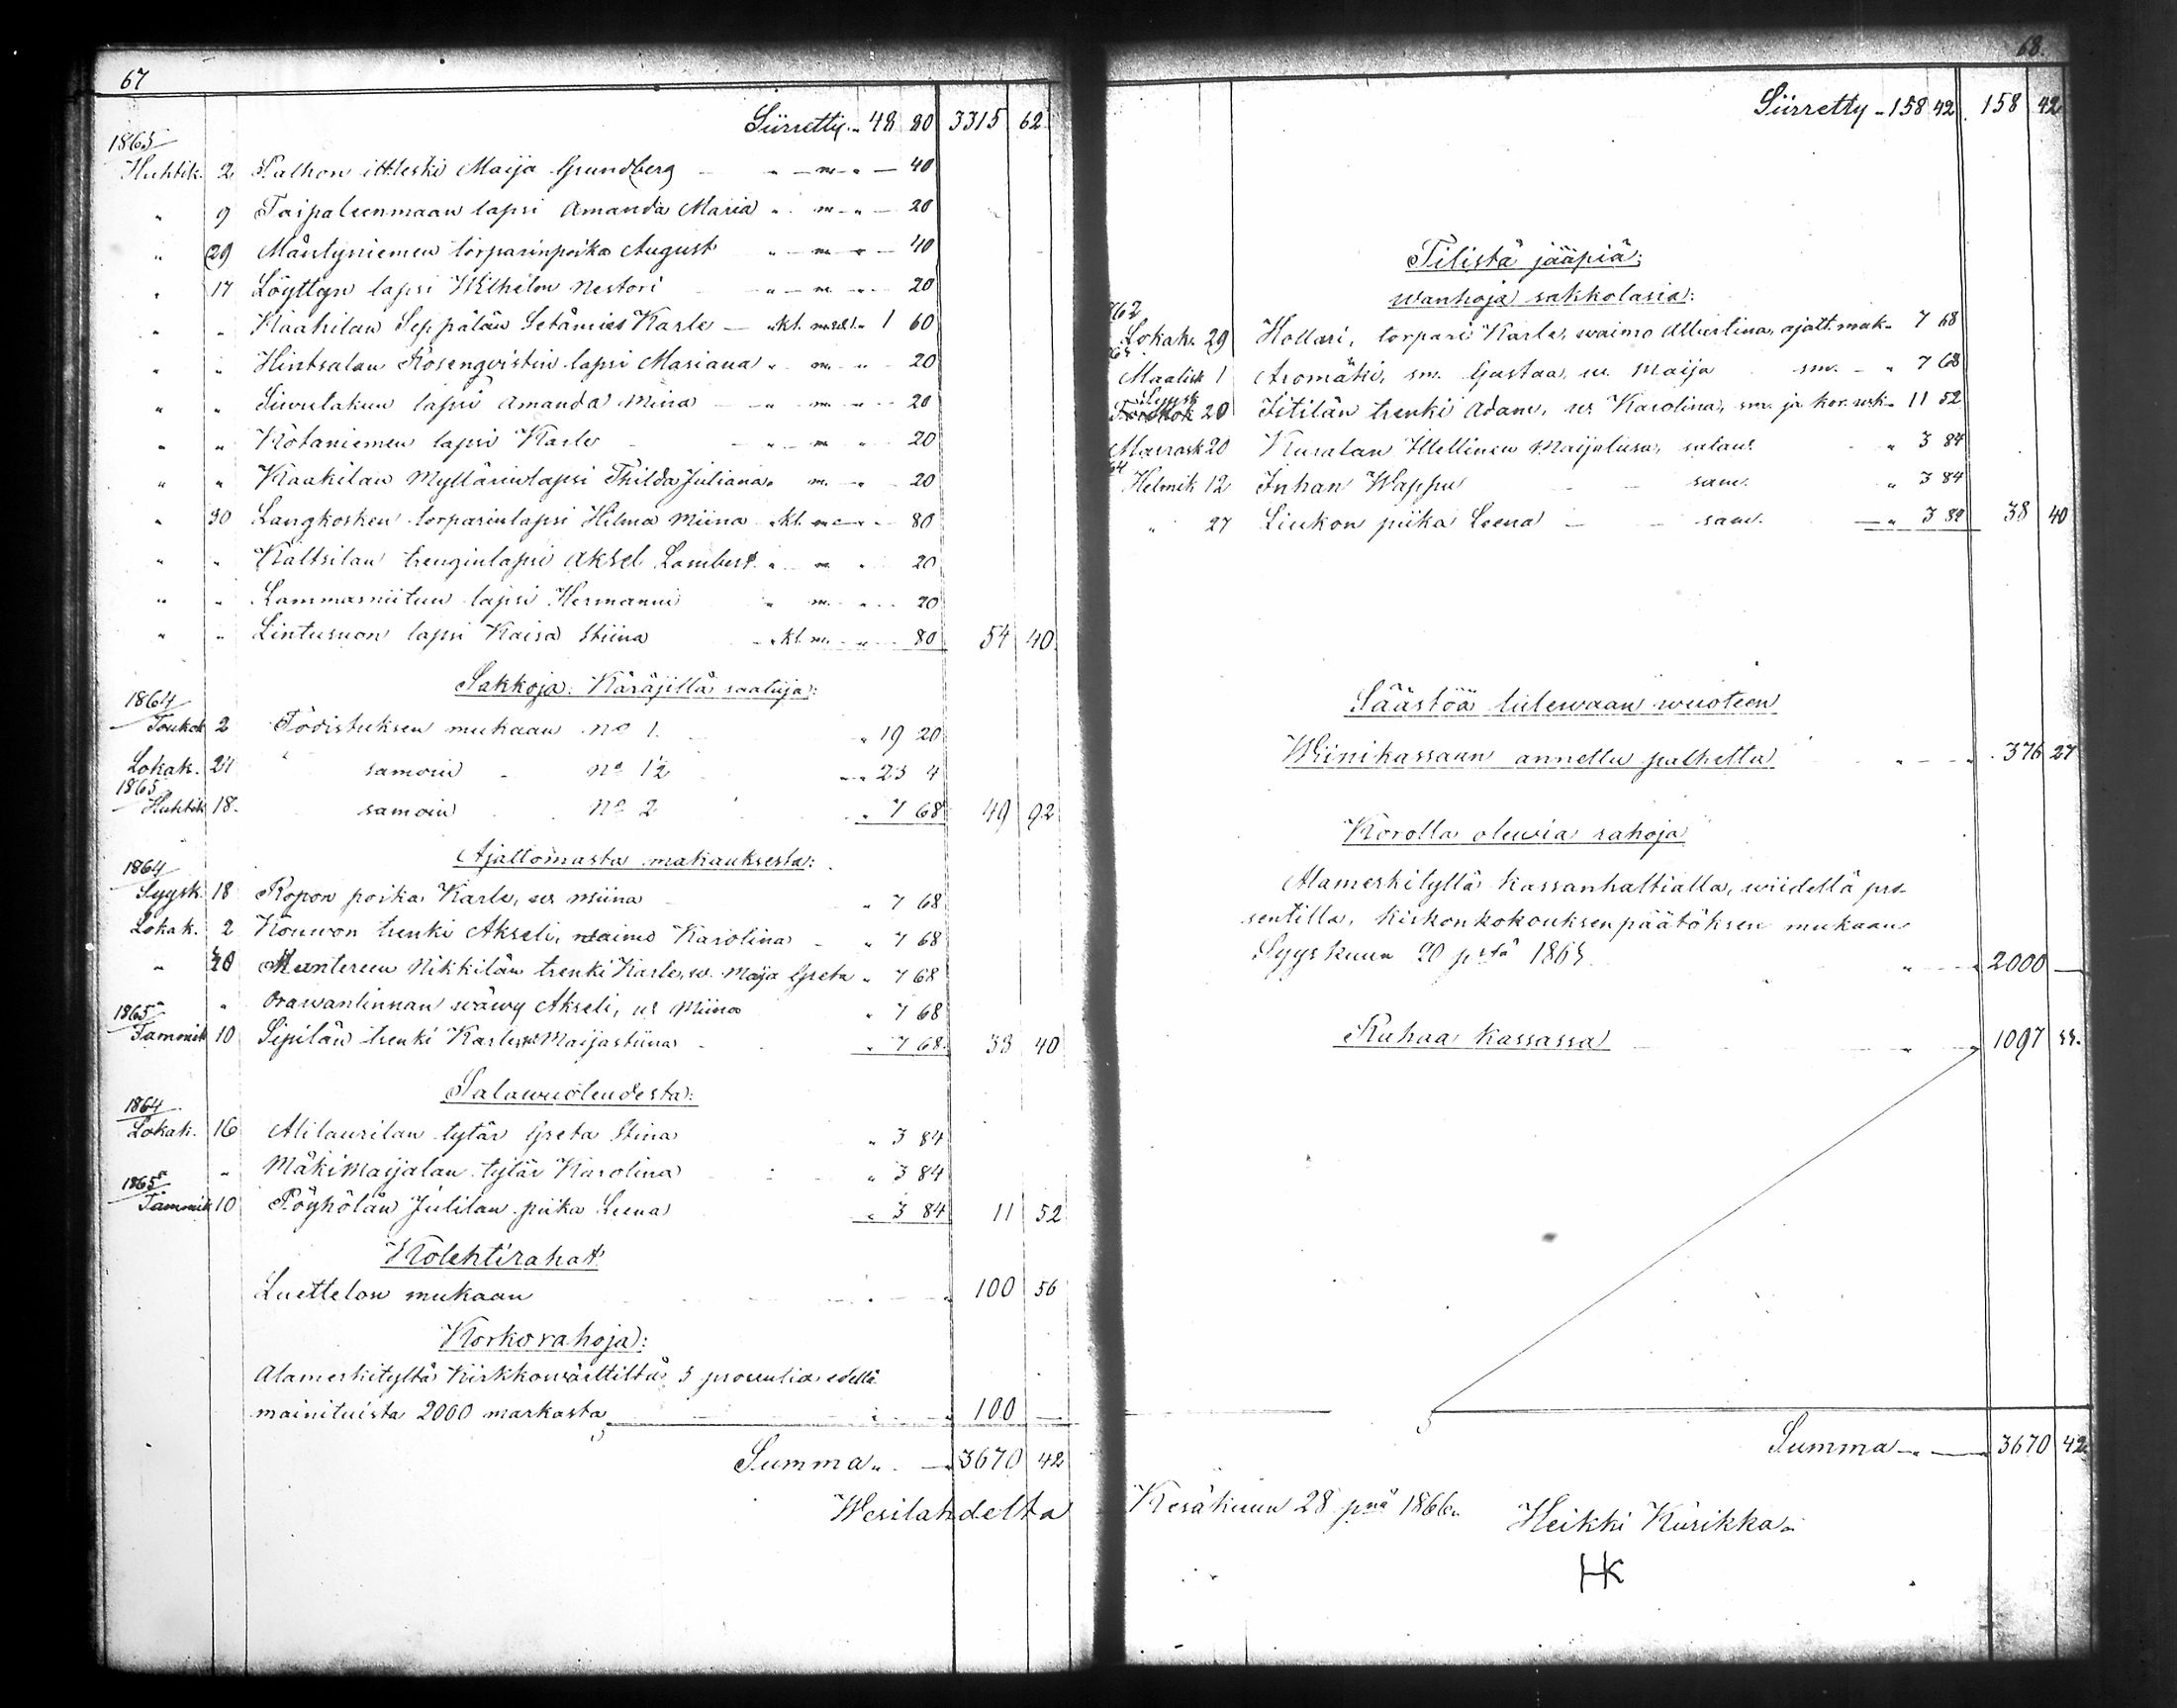 67
Siirretty „ 48 80 3315 62
1865
Huhtik. 2 Palhon ittleski Maija Grundberg „ — m. „ — 40
„ 9 Taipaleenmaan lapsi Amanda Maria „ m. „ — 20
„ 29 Mäntyniemen torparinpoika August „ — m. „ — 40
„ 17 Löyttyn lapsi Wilhelm Nestori „ — m. „ 20
„ „ Kaakilan Seppälän Setämies Karle — „ kl. 1 60
„ „ Hintsalan Rosenqvistin lapsi Mariana „ m. „ 20
„ „ lapsi Amanda Mina „ m. „ 20
„ „ Kotaniemen lapsi Karle „ m. „ 20
„ „ Kaakilan Myllärinlapsi Thilda Juliana „ m. „ 20
„ 30 Langkosken torparinlapsi Hilma Miina „ kl. m. „ 80
„ „ Kaltsilan trenginlapsi Aksel Lambert „ m. „ 20
„ „ Lammasniitun lapsi Hermanni „ m. „ 20
„ „ Lintusuon lapsi Kaisa Stiina „ kl. m. „ 80 54 40
Sakkoja: Käräjillä saatuja:
1864
Toukok 2 Todistuksen mukaan No 1. „ 19 20
Lokak. 24 samoin No 12 „ 23 4
1865
Huhtik 18. samoin No 2 „ 7 68 49 92
Ajattomasta makauksesta:
1864
Syysk. 18 Ropon poika Karle, w. Miina „ 7 68
Lokak. 2 Kouwon trenki Akseli, waimo Karolina „ 7 68
„ 30 Mantereen Nikkilän trenki Karle, w. Maja Greta „ 7 68
„ Orawanlinnan wäwy Akseli, w. Miina „ 7 68
1865
Tammik 10 Sipilän trenki Karle, w. Maijastiina „ 7 68 38 40
Salawuoteudesta:
1864
Lokak. 16 Alilaurilan tytär Greta Stina „ 3 84
„ Mäkimaijalan tytär Karolina „ 3 84
1865
Tammik 10 Pöyhölän Julilan piika Leena „ 3 84 11 52
Kolehtirahat
Luettelon mukaan „ 100 56
Korkorahoja:
Alamerkityltä Kirkkowärttiltä 5 prosentia edellä
mainituista 2000 markasta „ 100 —
Summa „ — 3670 42
Wesilahdelta
68.
Siirretty „ 158 42 158 42
Tilistä jääpiä:
wanhoja sakkolasia:
862
Lokak. 29 Hollari, torpari Karle, waimo Albertina, ajatt. mak. 7 68
Maalisk 1 Aromäki, sm. Gustaa, w. Maija sm. „ 7 68
20 Iitilän trenki Adam, w. Karolina, sm. ja 11 52
Marrask 20 Kuralan Hellinen Maijalusa, salaw. „ 3 84
64
Helmik 12 Inhan Wappu sam. „ 3 84
„ 27 Liukon piika Leena — sam. „ 3 84 38 40
Säästöä tulewaan wuoteen
Wiinikassaan annettu puhetta „ 376 27
Korolla olewia rahoja
Alamerkityllä Kassanhaltialla, wiidellä pro-
sentilla, Kirkonkokouksen päätöksen mukaan
Syyskuun 20 pstä 1863 „ 2000 —
Rahaa Kassassa „ 1097 33.
Summa „ — 3670 42
Kesäkuun 28 pnä 1866.
Heikki Kurikka
HK